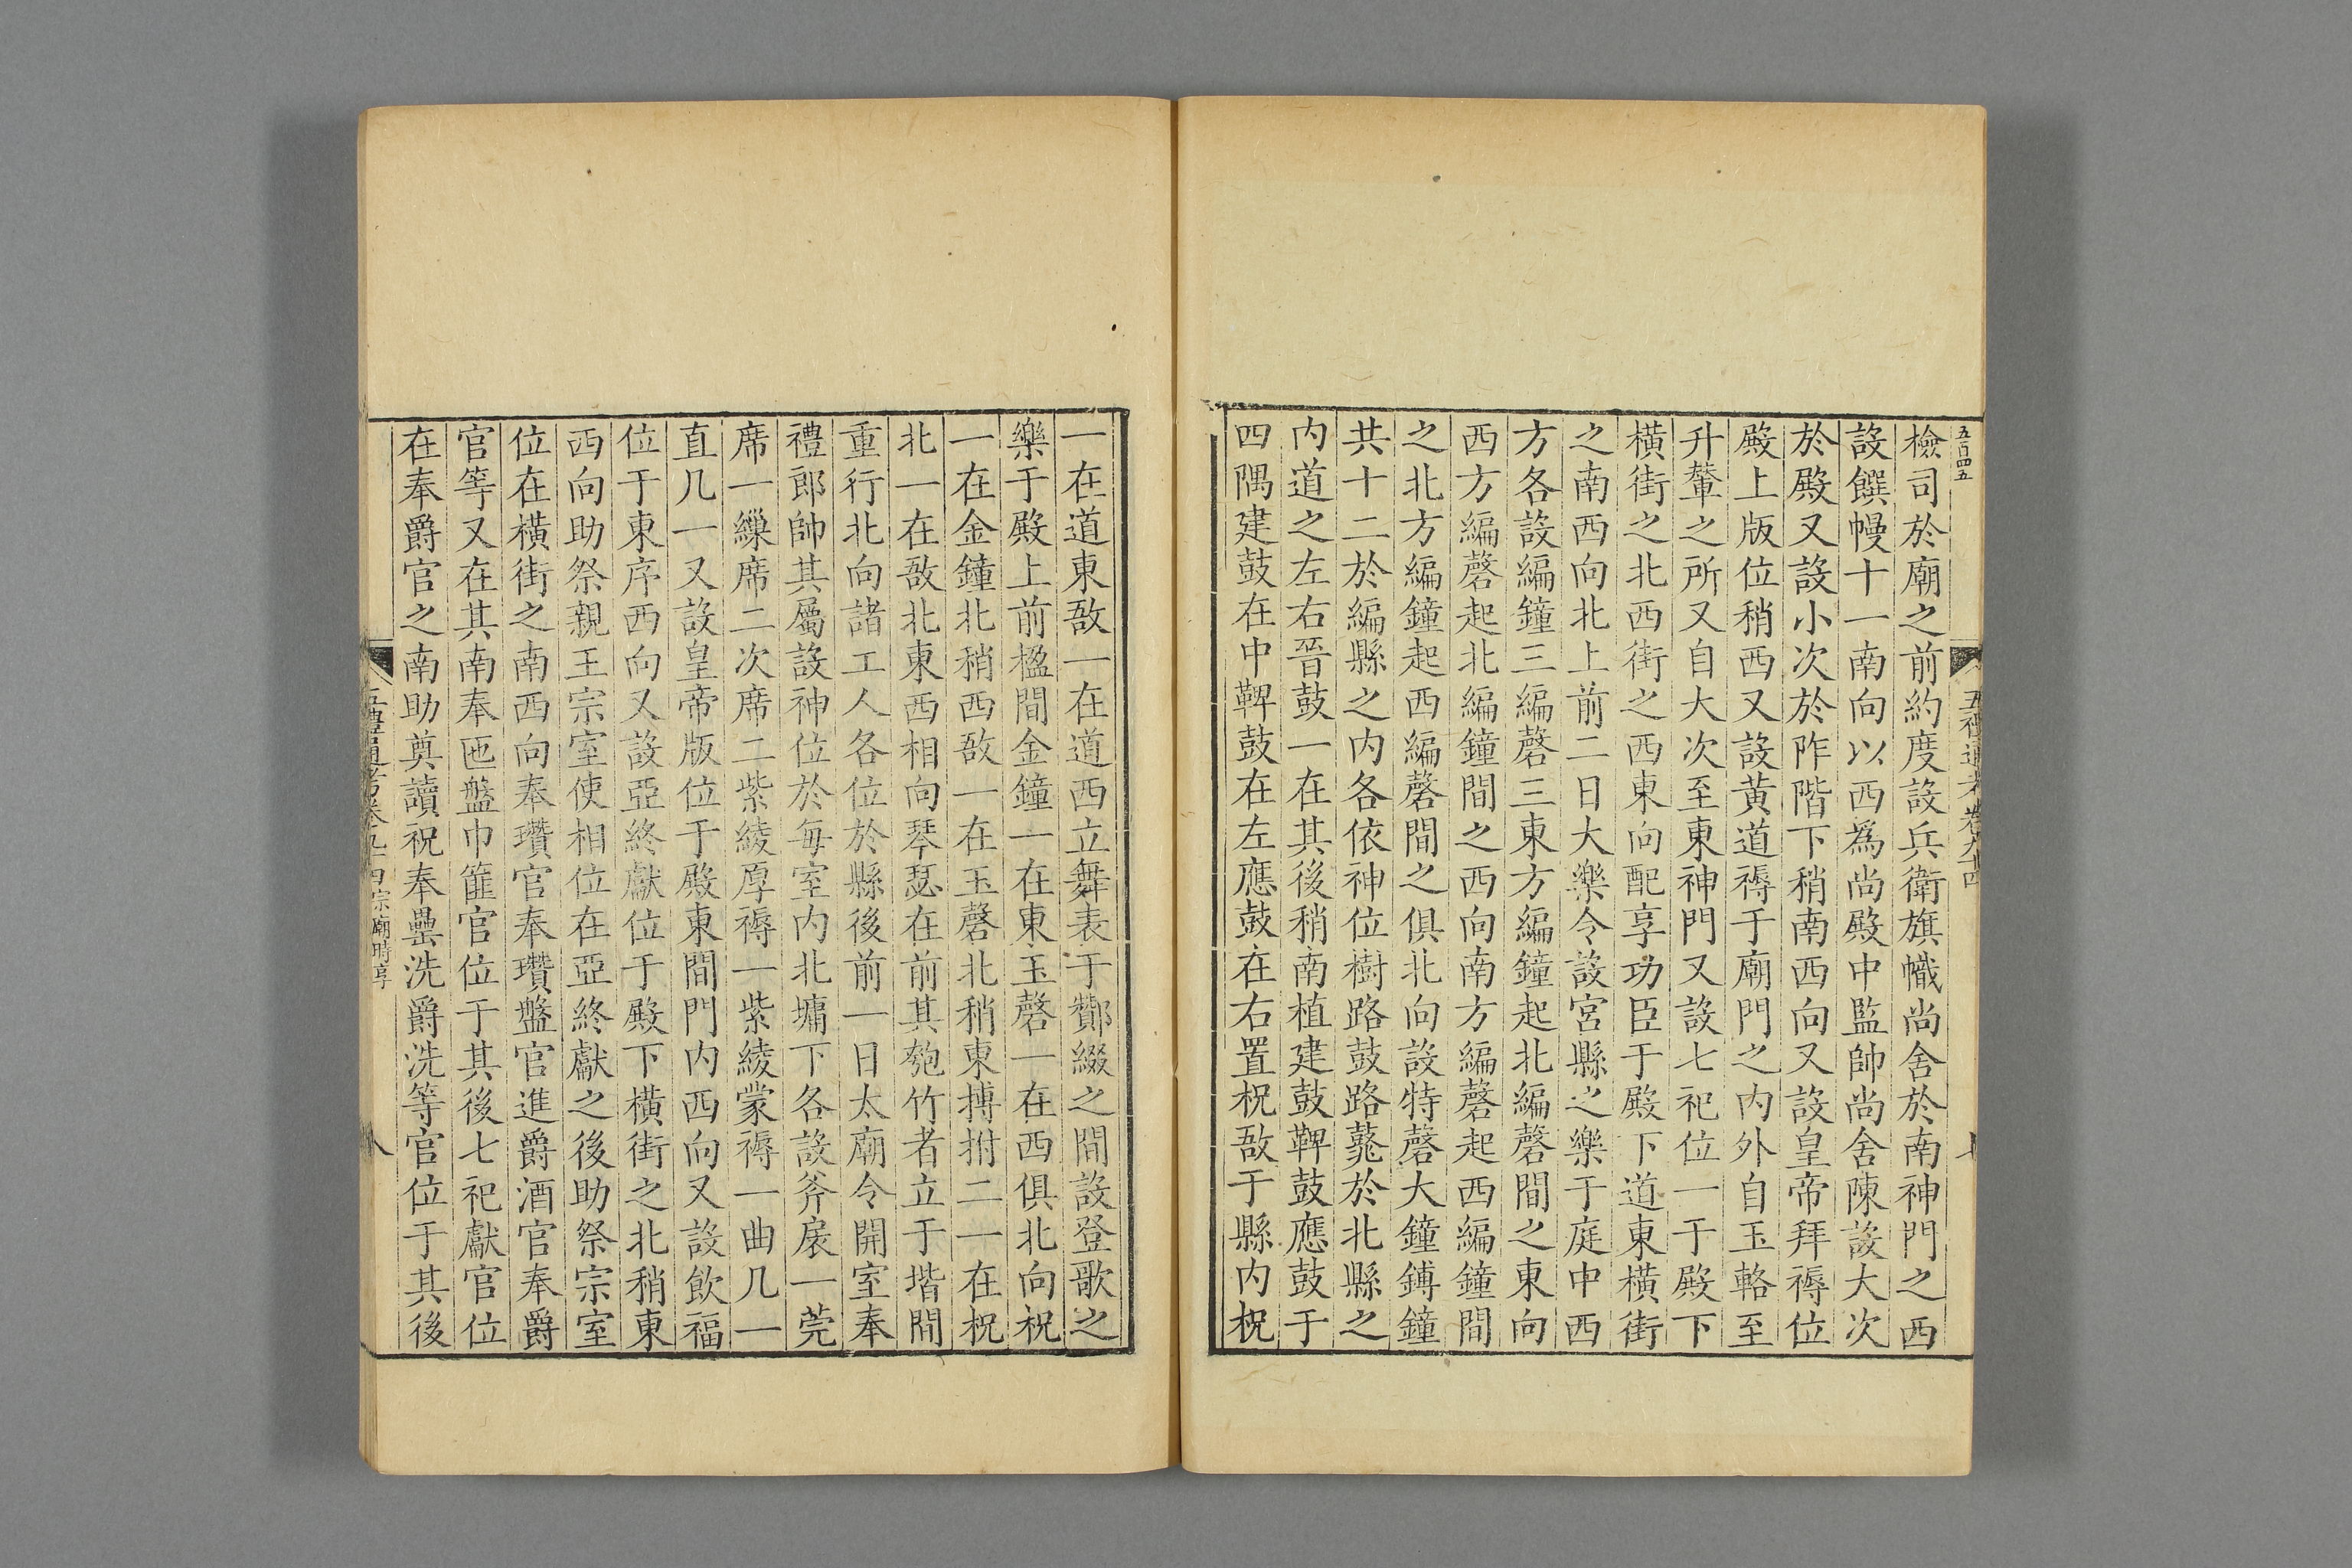 五百四五
五禮通考卷九十四
七
檢司於廟之前約度設兵衛旗幟尚舍於南神門之西
設饌幔十一南向以西爲尚殿中監帥尚舍陳設大次
於殿又設小次於阼階下稍南西向又設皇帝拜褥位
殿上版位稍西又設黃道褥于廟門之内外自玉輅至
升輦之所又自大次至東神門又設七祀位一于殿下
橫街之北西街之西東向配享功臣于殿下道東橫街
之南西向北上前二日大樂令設宮縣之樂于庭中西
方各設編鐘三編磬三東方編鐘起北編磬間之東向
西方編磬起北編鐘間之西向南方編磬起西編鐘間
之北方編鐘起西編磬間之俱北向設特磬大鐘鎛鐘
共十二於編縣之内各依神位樹路鼓路鼗於北縣之
内道之左右晉鼓一在其後稍南植建鼓鞞鼓應鼓于
四隅建鼓在中鞞鼓在左應鼓在右置柷敔于縣内柷
一在道東敔一在道西立舞表于酇綴之間設登歌之
樂于殿上前楹間金鐘一在東玉磬一在西俱北向柷
一在金鐘北稍西敔一在玉磬北稍東搏拊二一在柷
北一在敔北東西相向琴瑟在前其匏竹者立于堦間
重行北向諸工人各位於縣後前一日太廟令開室奉
禮郎帥其屬設神位於每室内北墉下各設斧扆一莞
席一繅席二次席二紫綾厚褥一紫綾蒙褥一曲几一
直几一又設皇帝版位于殿東間門内西向又設飲福
位于東序西向又設亞終獻位于殿下橫街之北稍東
西向助祭親王宗室使相位在亞終獻之後助祭宗室
位在橫街之南西向奉瓚官奉瓚盤官進爵酒官奉爵
官等又在其南奉匜盤巾篚官位于其後七祀獻官位
在奉爵官之南助奠讀祝奉罍洗爵洗等官位于其後
五禮通考卷九十四宗廟時享
八